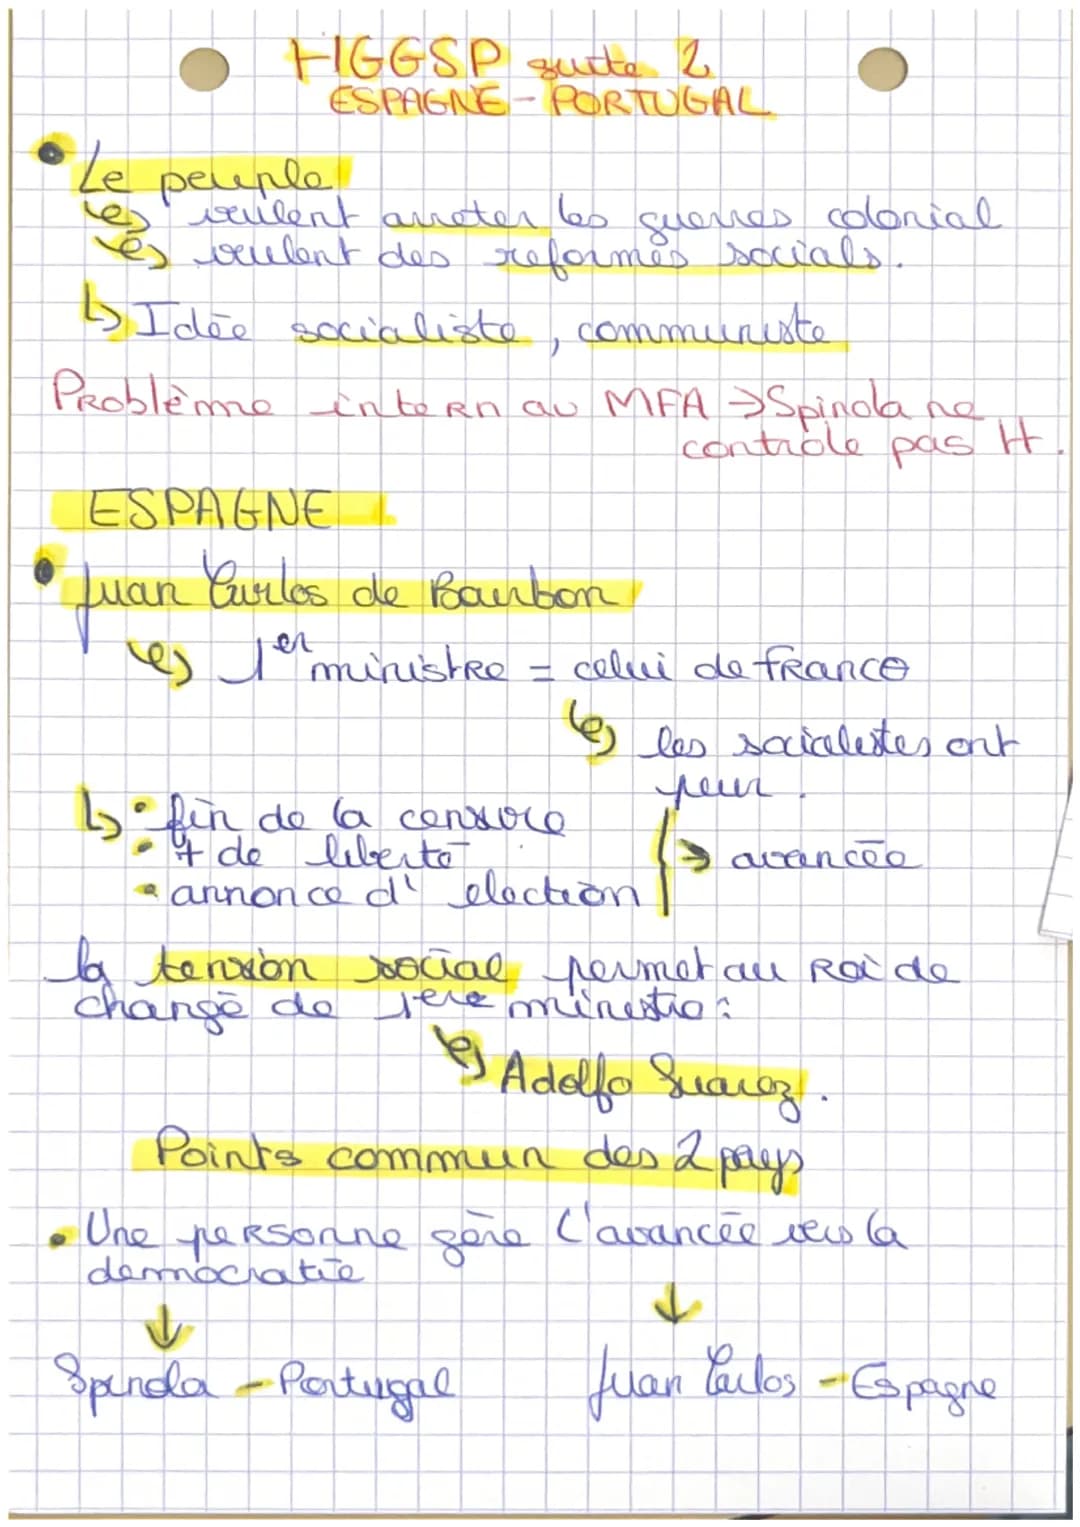 HGGSP suite 2
ESPAGNE - PORTUGAL
• Le peuple
↳ veulent arreter les guerres colonial
↳ veulent des reformes socials.
↳ Idée socialiste, communiste
Problème intern au MFA → Spinola ne
controle pas tt.
ESPAGNE
• Juan Carlos de Bourbon
↳ 1er ministre = celui de franco
↳ les socialistes ont
peur.
↳ • fin de la censure
• + de liberté
→ avancée
• annonce d' election
la tension social permet au Roi de
changé de 1ere ministre:
↳ Adolfo Suarez.
Points commun des 2 pays
• Une personne gère l'avancée vers la
democratie
↓ ↓
Spinola - Portugal Juan Carlos - Espagne